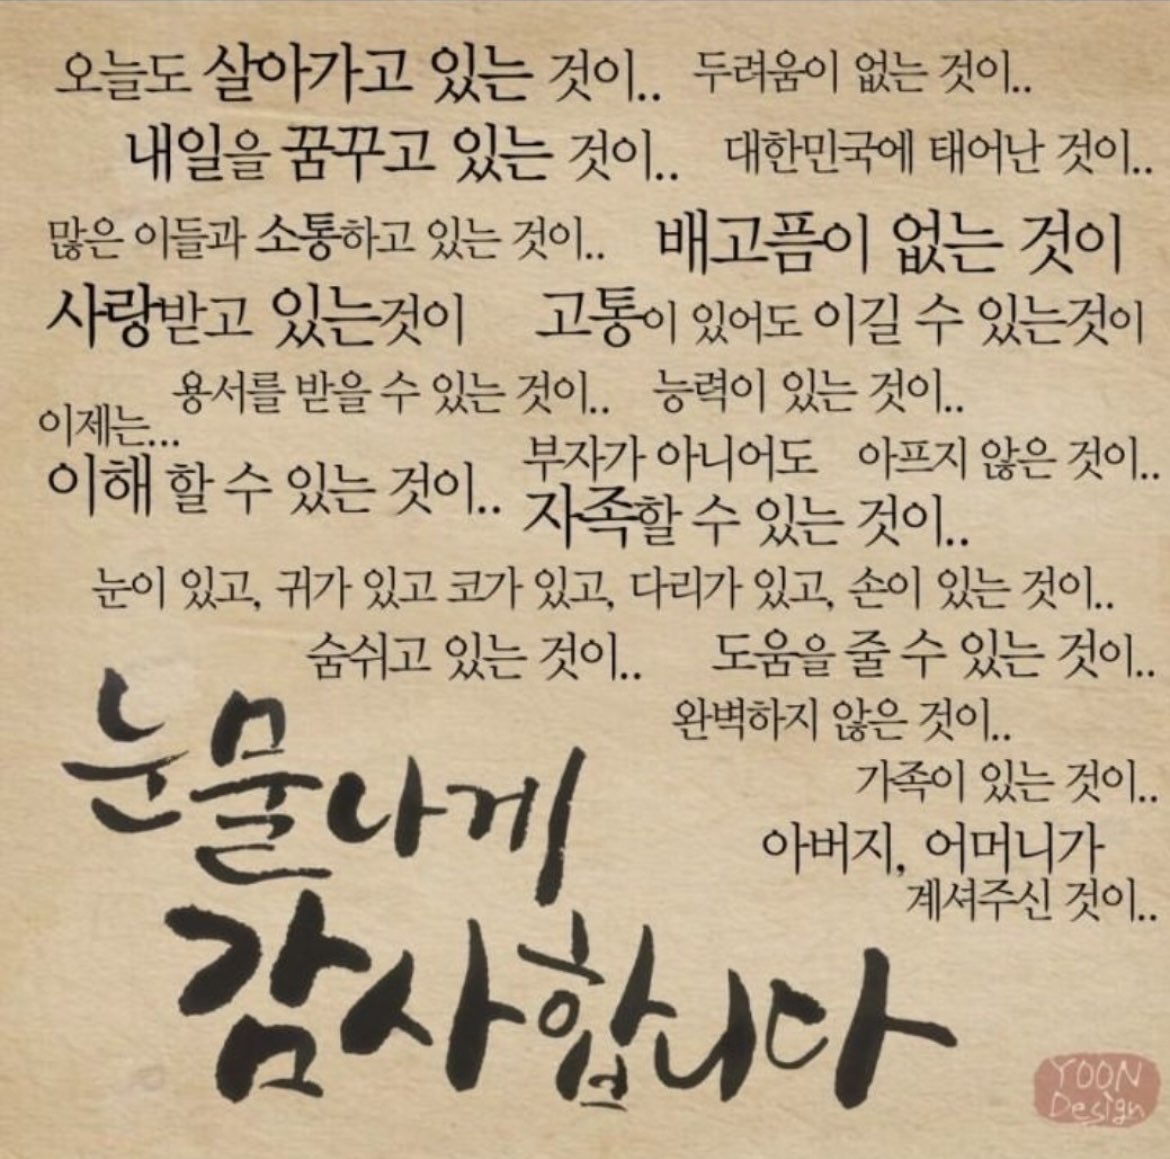 오늘도 살아가고 있는 것이.. 두려움이 없는 것이..
내일을 꿈꾸고 있는 것이.. 대한민국에 태어난 것이..
많은 이들과 소통하고 있는 것이.. 배고픔이 없는 것이
사랑받고 있는것이 고통이 있어도 이길 수 있는것이
용서를 받을 수 있는 것이.. 능력이 있는 것이..
이제는...
이해 할 수 있는 것이..
부자가 아니어도 아프지 않은 것이..
자족할 수 있는 것이..
눈이 있고, 귀가 있고 코가 있고, 다리가 있고, 손이 있는 것이..
숨쉬고 있는 것이.. 도움을 줄 수 있는 것이..
완벽하지 않은 것이..
가족이 있는 것이..
아버지, 어머니가
계셔주신 것이..
눈물나게
감사합니다
YOON
Design